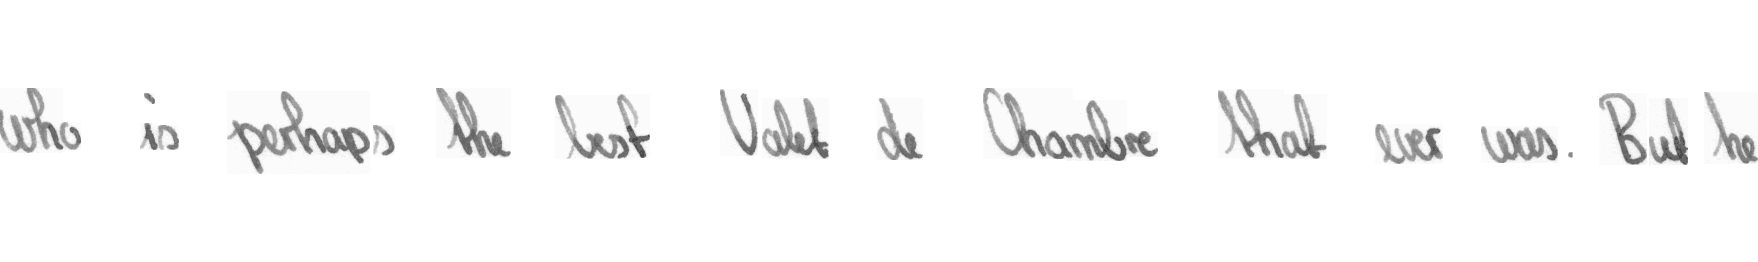 who is perhaps the best Valet de Chambre that ever was. But he